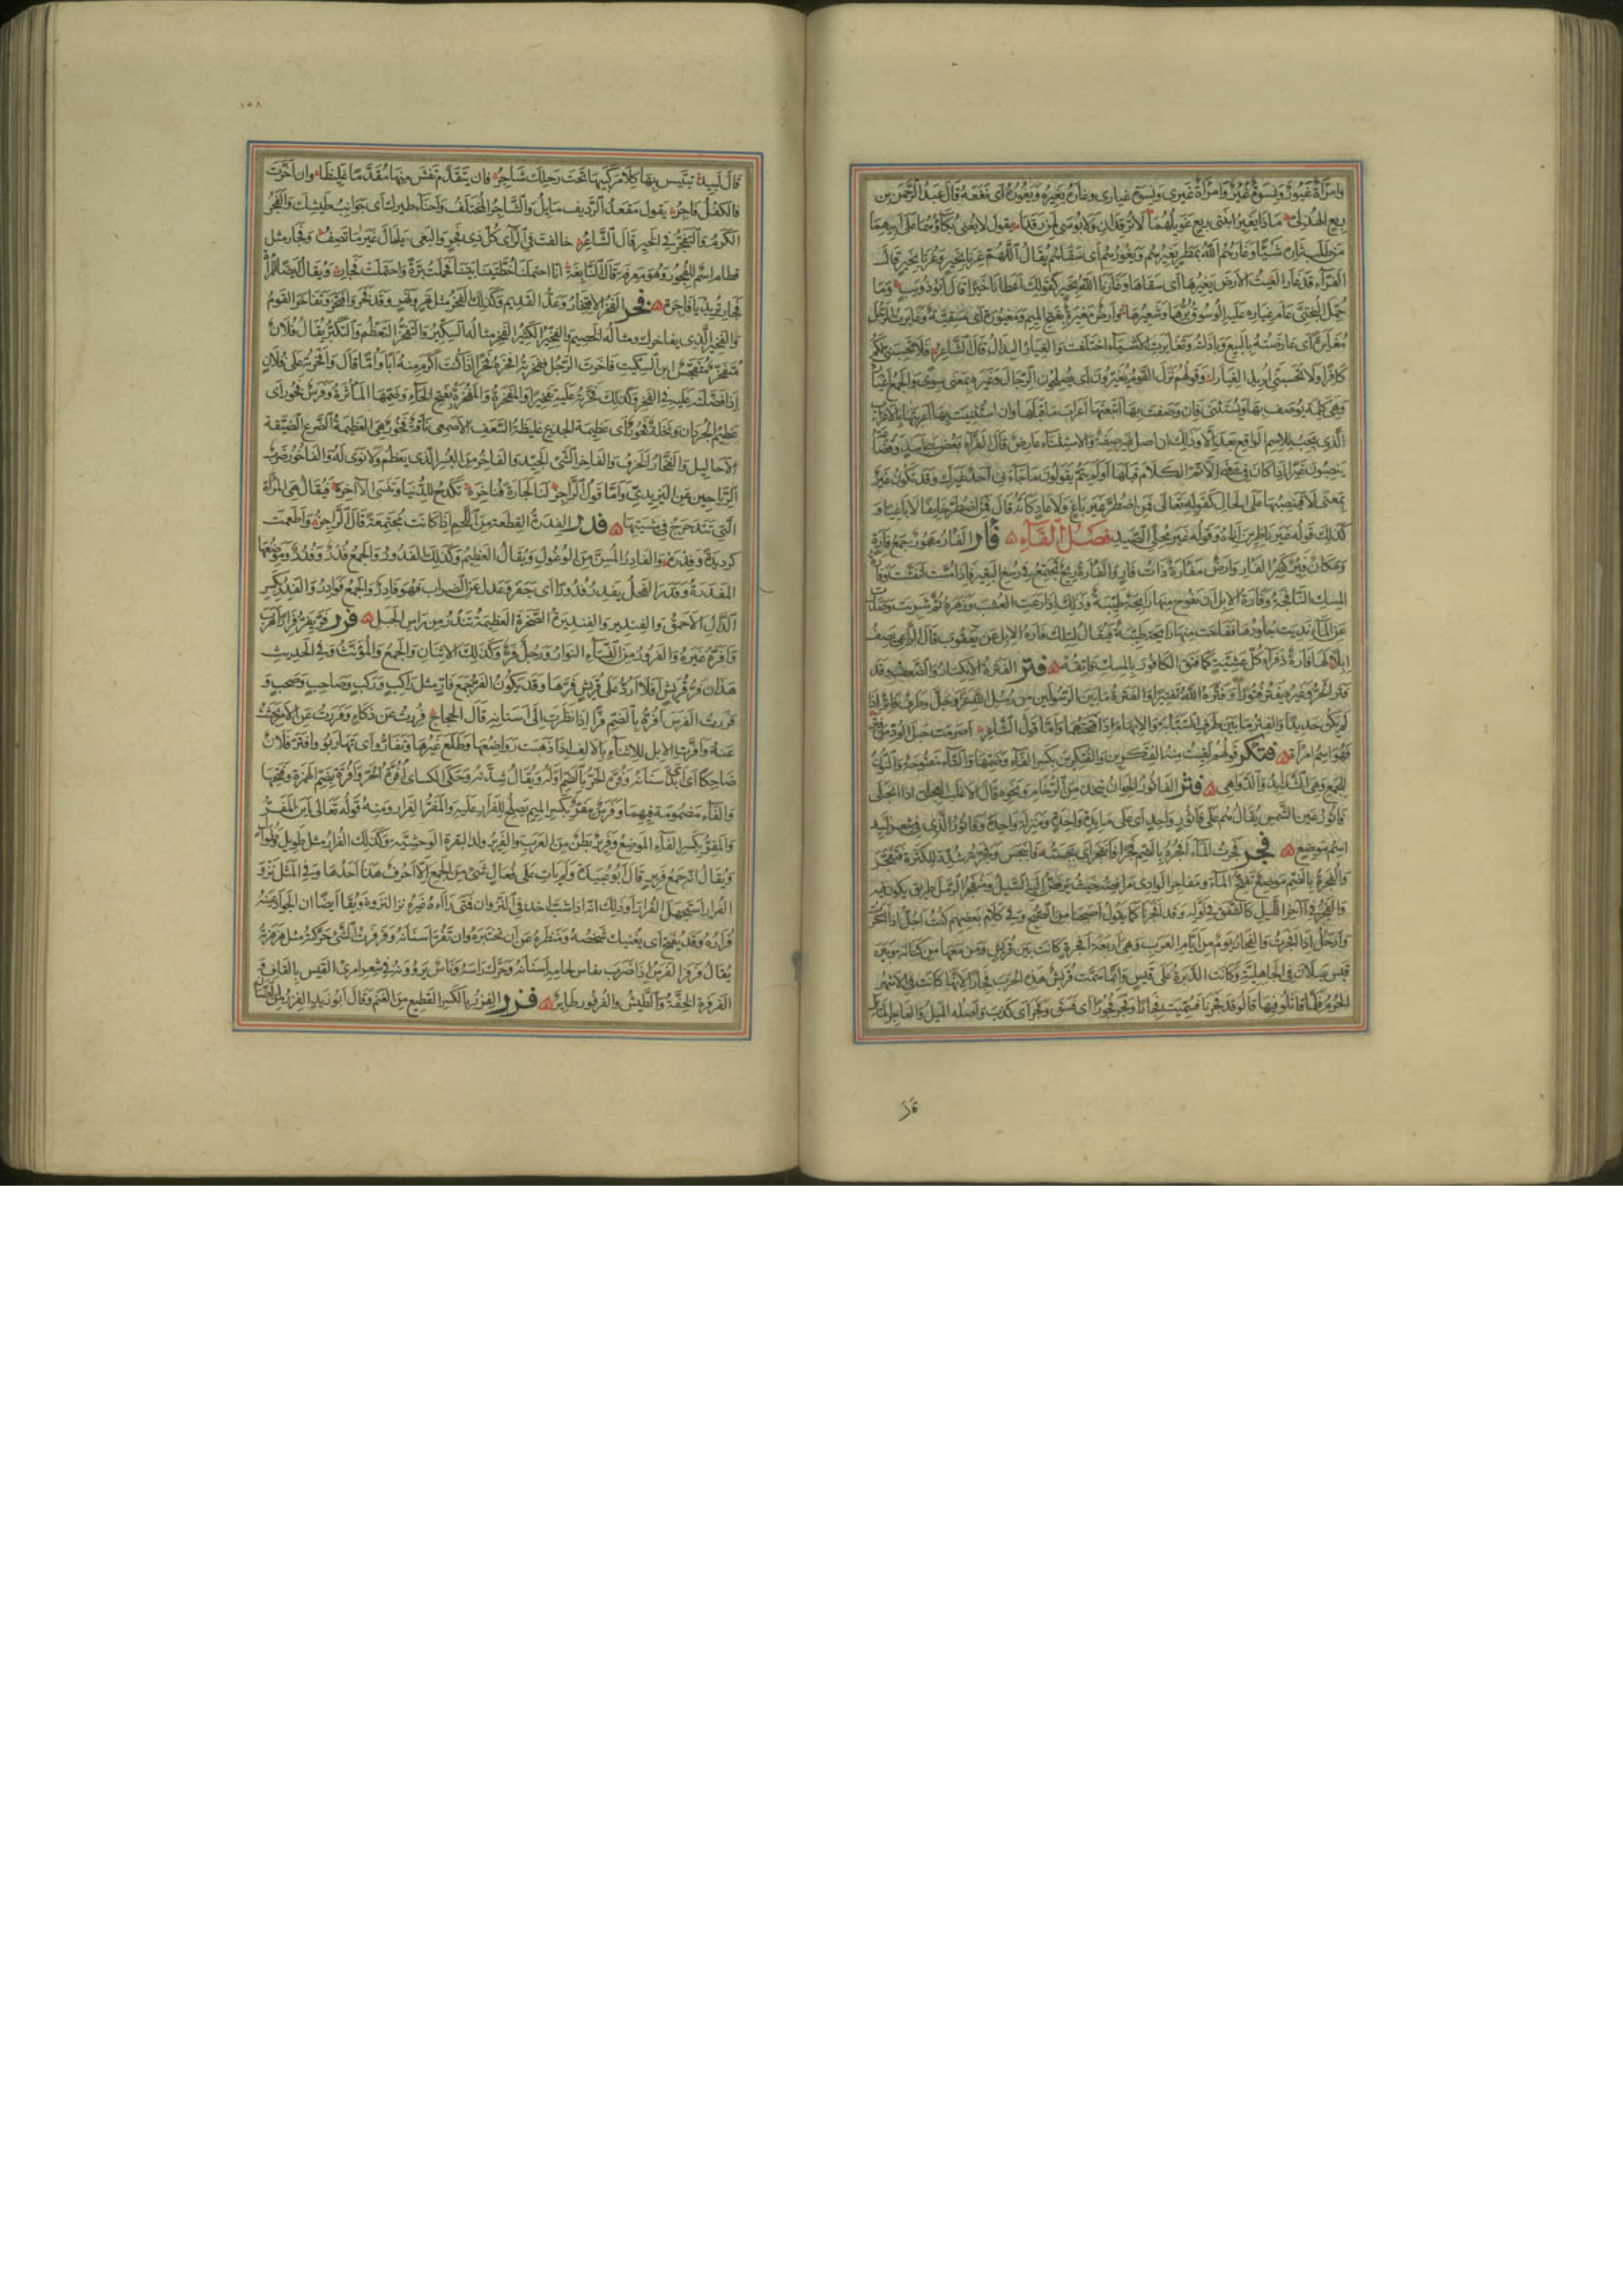 وامرأة غيور ونسوة غير وامرأة غيرى ونسوة غيارى وغاره يغيره ويغوره أى نفعه قال عبد الرحمن بن
ربع الهذلى ماذا يغير ابنتى ربع عويلهما لا ترقدان ولا بوسى لمن رقدا يقول لا يغنى بكاؤهما على ابيهما
من طلب ثاره شيئا وغارهم الله بمطر يغيرهم ويغورهم أى سقاهم يقال اللهم غرنا بخير وغرنا بخير قال
الفراء قد غار الغيث الارض يغيرها أى سقاها وغارنا الله بخير كقولك أعطانا خيرا قال أبو ذؤيب وما
حمل البختى عام غياره عليه الوسوق برها وشعيرها وارض مغيرة بفتح الميم ومغيورة أى مسقية وغايرت الرجل
مغايرة أى عارضته بالبيع وبادلته وتغايرت الاشياء اختلفت والغيار البدال قال الشاعر فلا تحسبنى لكم
كافرا ولا تحسبنى أريد الغيارا وقولهم نزل القوم يغيرون أى يصلحون الرحال وغير بمعنى سوى والجمع أغيار
وهى كلمة يوصف بها ويستثنى فان وصفت بها أتبعتها اعراب ما قبلها وان استثنيت بها أعربتها بالاعراب
الذى يجب للاسم الواقع بعد الا وذلك ان اصل غير صفة والاستثناء عارض قال الفراء بعض بنى اسد وقضاعة
ينصبون غيرا اذا كان فى معنى الا تم الكلام قبلها أو لم يتم يقولون ما جاءنى احد غيرك وقد تكون غير
بمعنى لا فتنصبها على الحال كقوله تعالى فمن اضطر غير باغ ولا عاد كانه قال فمن اضطر خايفا لا باغيا و
كذلك قوله غير ناظرين اناه وقوله غير محلى الصيد فصل الفاء فأر الفار مهموز جمع فارة
ومكان فئر كثير الفار وارض مفارة ذات فار والفارة ريح تجتمع فى رسغ البعير فاذا مست انفشت وفارة
المسك النافجة وفارة الابل ان تفوح منها رائحة طيبة وذلك اذا رعت العشب وزهره ثم شربت وصدرت
عن الماء نديت جلودها ففاحت منها رايحة طيبة فيقال لتلك فارة الابل عن يعقوب قال الراعى يصف
ابلا لها فارة ذفراء كل عشية كما فتق الكافور بالمسك فاتقه فتر الفترة الانكسار والضعف وقد
فتر الحر وغيره يفتر فتورا وفتره الله تفتيرا والفترة ما بين الرسولين من رسل الله عز وجل وطرف فاتر اذا
لم يكن حديدا والفتر ما بين طرف السبابة والابهام اذا فتحتهما واما قول الشاعر أصرمت حبل الود من فتر
فهو اسم امرأة فتكر قولهم لقيت منه الفتكرين والفتكرين بكسر الفاء وضمها والتاء مفتوحة والنون
للجمع وهى الشدايد والدواهى فثر الفاثور الخوان يتخذ من الرخام ونحوه قال الاغلب العجلى اذا انجلى
فاثور عين الشمس يقال هم على فاثور واحد أى على مايدة واحدة ومنزلة واحدة وفاثور الذى فى شعر لبيد
اسم موضع فجر فجرت الماء أفجره بالضم فجرا فانفجر أى بجسته فانبجس وفجرته شدد للكثرة فتفجر
والفجرة بالضم موضع تفتح الماء ومفاجر الوادى مرافضه حيث يرفض اليه السيل ومنفجر الرمل طريق يكون فيه
والفجر فى آخر الليل كالشفق فى أوله وقد أفجرنا كما يقول أصبحنا من الصبح وفى كلام بعضهم كنت أحل اذا أسحرت
وأرحل اذا افجرت والفجار يوم من أيام العرب وهى أربعة أفجرة كانت بين قريش ومن معها من كنانة وبين
قيس عيلان فى الجاهلية وكانت الدبرة على قيس وانما سمت قريش هذه الحرب فجارا لانها كانت فى الاشهر
الحرم فلما قاتلوا فيها قالوا قد فجرنا فسميت فجارا وفجر فجورا أى فسق وفجر أى كذب وأصله الميل والفاجر المائل
قال
١٥٨
قال لبيد فان تتقدم تغش منها مقدما غليظا وان أخرت
فالكفل فاجر يقول مقعد الرديف مايل والشاجر المختلف وأحناء طيرك أى جوانب طيشك والفجر
الكرم والتفجر فى الخير قال الشاعر خالفت فى الرأى كل ذى فجر والبغى يا مال غير ما تصف وفجار مثل
قطام اسم للفجور وهو معرفة قال النابغة انا احتملنا خطتينا بيننا فحملت برة واحتملت فجار ويقال ايضا للمرأة
يا فجار تريد يا فاجرة فخر الفخر الافتخار وعد القديم وكذلك الفخر مثل نهر ونهر وقد فخر وافتخر وتفاخر القوم
والفخير الذى يفاخرك ومثاله الخصيم والفخير الكثير الفخر مثاله السكير والتفخر التعظم والتكبر يقال فلان
متفخر متفجس ابن السكيت فاخرت الرجل ففخرته أفخره فخرا اذا كنت أكرم منه أبا وأما قال وأفخرته على فلان
اذا فضلته عليه فى الفخر وكذلك فخرته عليه تفخيرا والمفخرة والمفخرة بفتح الخاء وضمها المأثرة وفرس فخور أى
عظيم الجردان ونخلة فخور أى عظيمة الجذع غليظة السعف الاصمعى ناقة فخور هى العظيمة الضرع الضيقة
الاحاليل والفخار الخزف والفاخر الشئ الجيد والفاخر من البسر الذى يعظم ولا نوى له والفاخور ضرب
من الرياحين عن اليزيدى واما قول الراجز ان لنا لجارة فناخره تكدح للدنيا وتنسى الآخره فيقال هى المرأة
التى تتدحرج فى مشيتها فدر الفدرة القطعة من اللحم اذا كانت مجتمعة قال الراجز وأطعمت
كرديدة وفدره والفادر المسن من الوعول ويقال العظيم وكذلك الفدور والجمع فدر وفدور وموضعها
المفدرة وفدر الفحل يفدر فدورا أى جفر وعدل عن الضراب فهو فادر والجمع فوادر والفدر بكسر
الدال الاحمق والفندير والفنديرة الصخرة العظيمة تندر من رأس الجبل فرر فر يفر فرارا هرب
وأفره غيره والفرور من النساء النوار ورجل فر وكذلك الاثنان والجمع والمؤنث وفى الحديث
هذان فر قريش أفلا أرد على قريش فرها وقد يكون الفر جمع فار مثل راكب وركب وصاحب وصحب و
فررت الفرس أفره بالضم فرا اذا نظرت الى أسنانه قال الحجاج فررت عن ذكاء وفررت عن الامر بحثت
عنه وأفرت الابل للاثناء بالالف اذا ذهبت رواضعها وطلع غيرها وتفاروا أى تهاربوا وافتر فلان
ضاحكا أى أبدا أسنانه وفرة الحر بالضم أوله ويقال شدته وحكى الكساى أفرة الحر وأفرة بضم الهمزة وفتحها
والفاء مضمومة فيهما وفرس مفر بكسر الميم يصلح للفرار عليه والمفر الفرار ومنه قوله تعالى أين المفر
والمفر بكسر الفاء الموضع وفرير بطن من العرب والفرير ولد البقرة الوحشية وكذلك الفرار مثل طويل وطوال
ويقال انه جمع فرير قال أبو عبيدة ولم يات على فعال شئ من الجمع الا أحرف هذا احدها وفى المثل نزو
الفرار استجهل الفرارا وذلك انه اذا شب اخذ فى النزوان فمتى رآه غيره نزا لنزوه ويقال أيضا ان الجواد عينه
فراره وقد يفتح أى يغنيك شخصه ومنظره عن أن تختبره وان تفر أسنانه وفرفرت الشئ حركته مثل هرهرته
يقال فرفر الفرس اذا ضرب بفاس لجامه أسنانه وحرك رأسه وناس يروونه فى شعر امرئ القيس بالقاف و
الفرفرة الخفة والطيش والفرفور طاير فزر الفزر بالكسر القطيع من الغنم وقال أبو زيد الفزر من الضأن